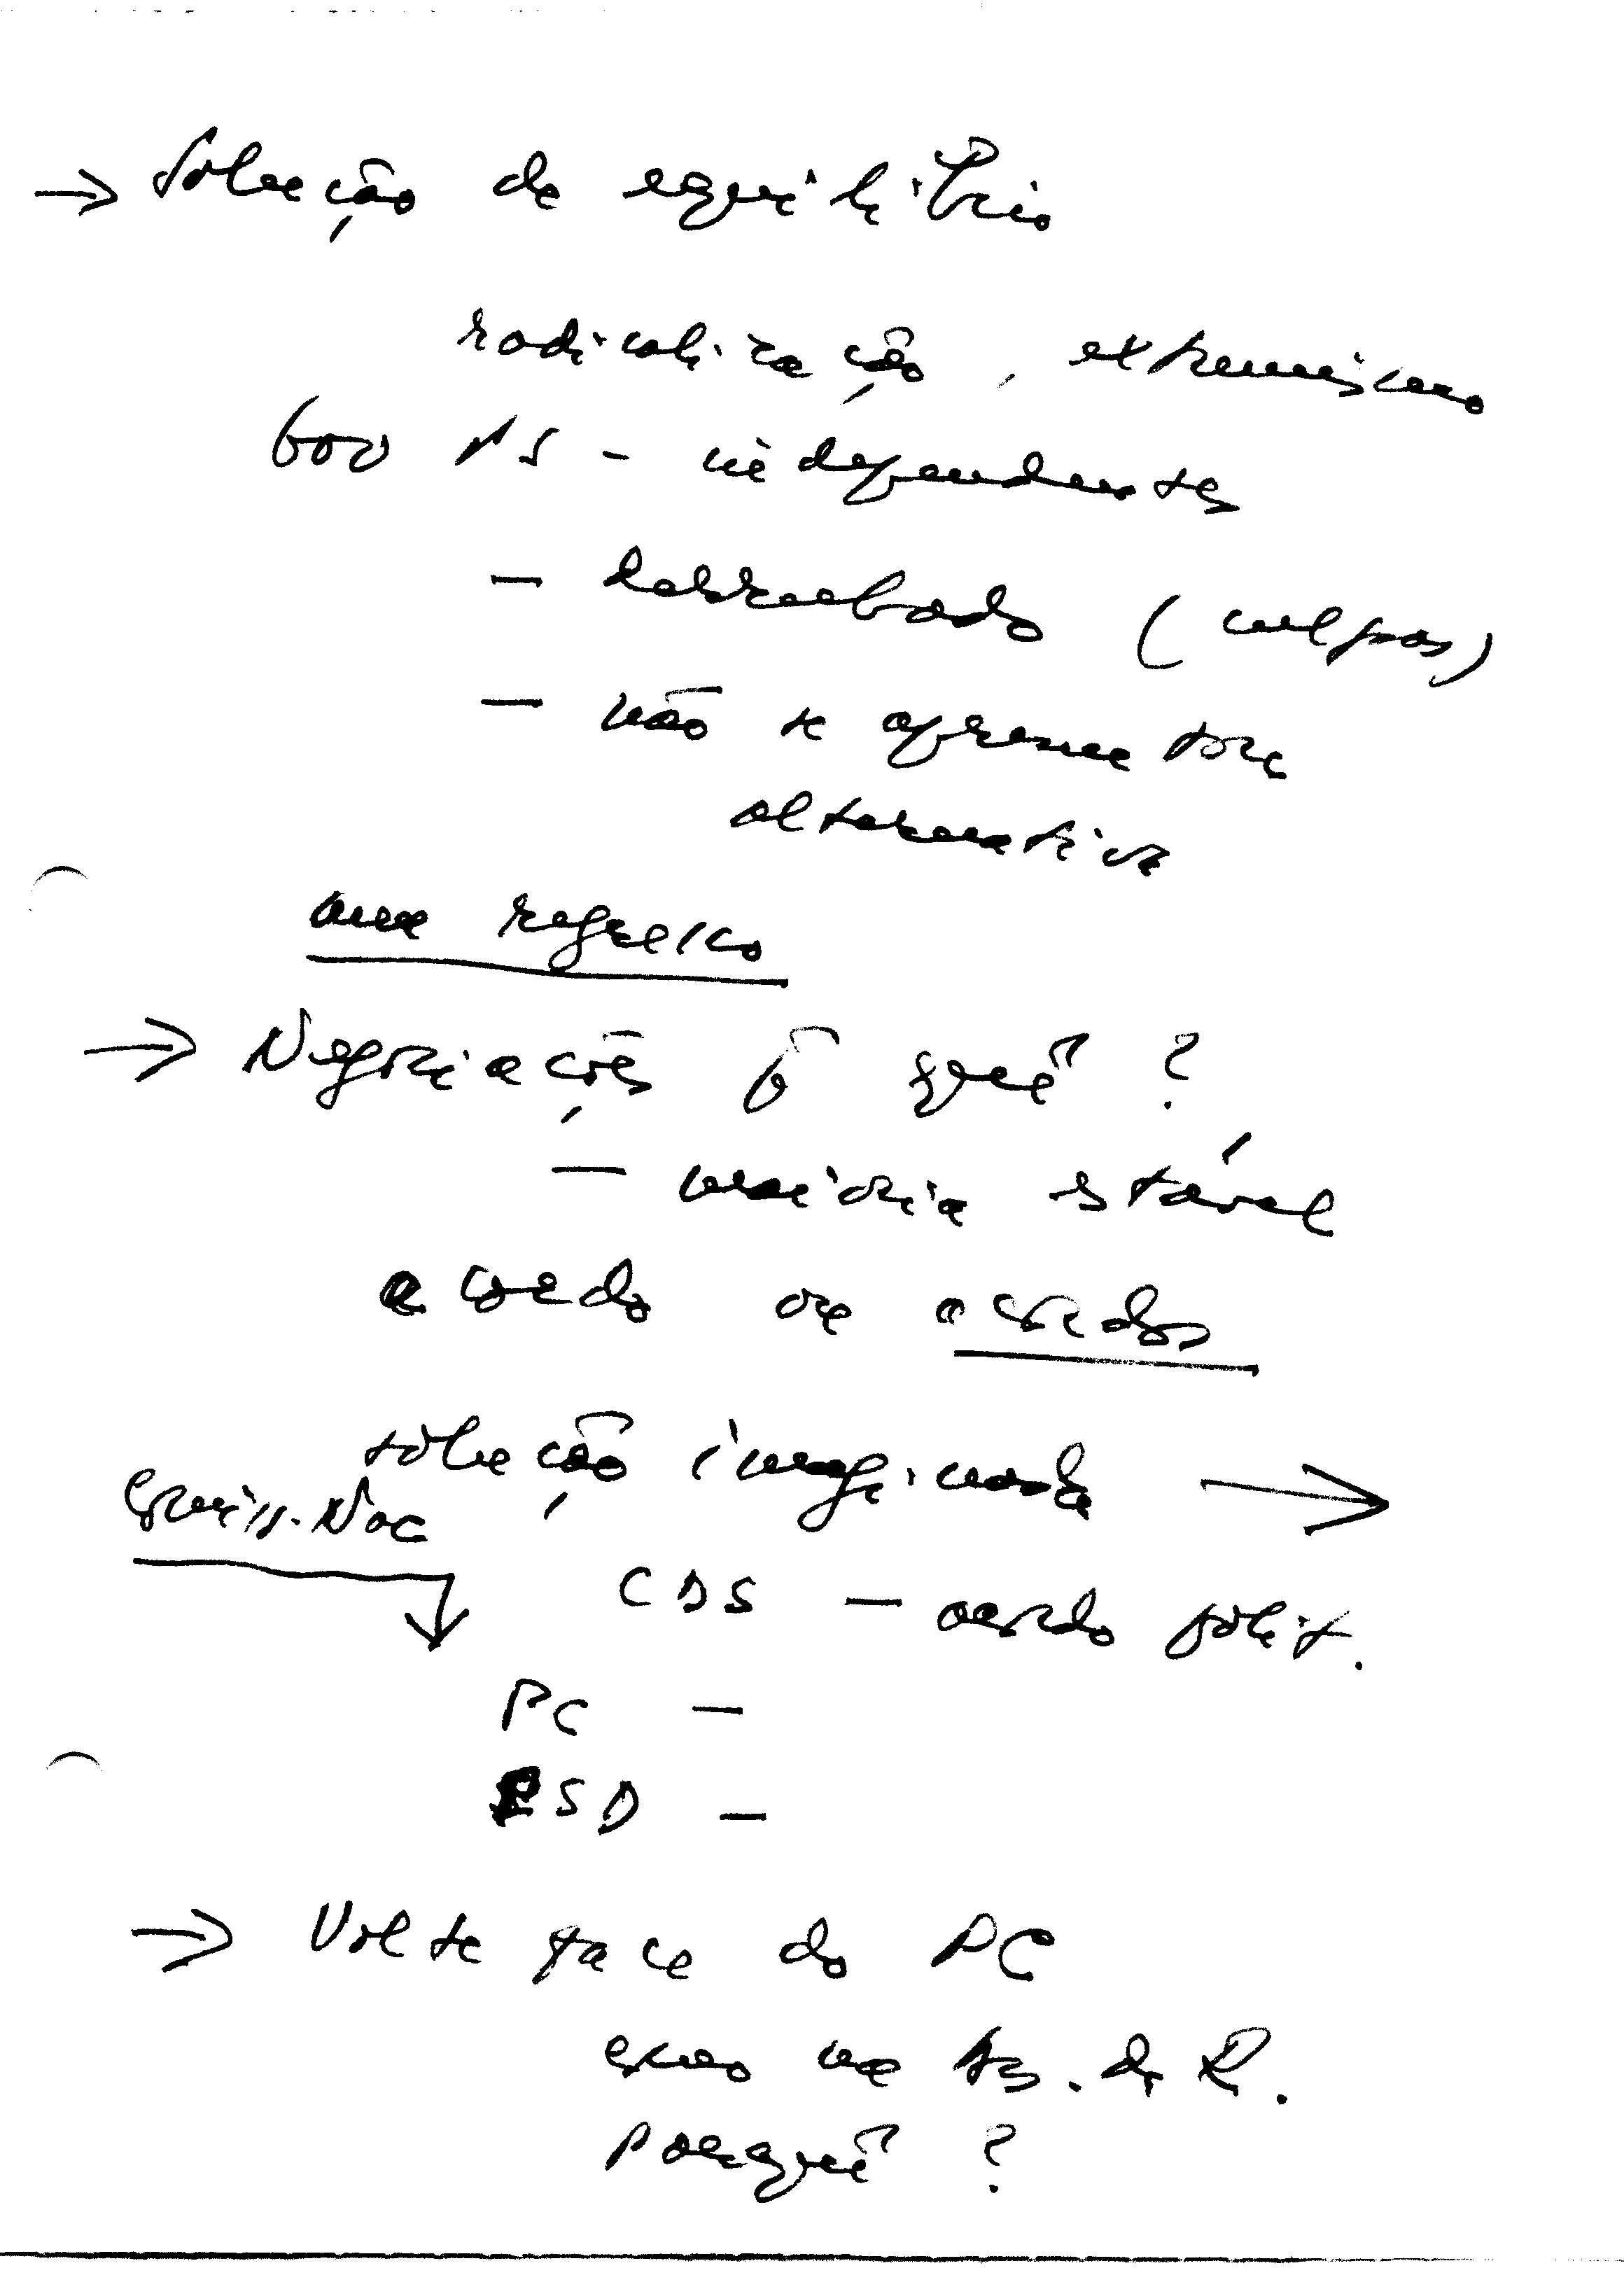 → Solução de equilíbrio
radicalização, extremismo
Gov PS - independentes
- derrubado (culpas)
- não se apresentou
alternativa
→ Negociações p/ quê?
- maioria estável
acordo ou acordos
solução imaginada →
Comiss. Nac
CDS - acordo polit.
PC -
PSD -
→ Volte face do PC
na As. da R.
Porquê?